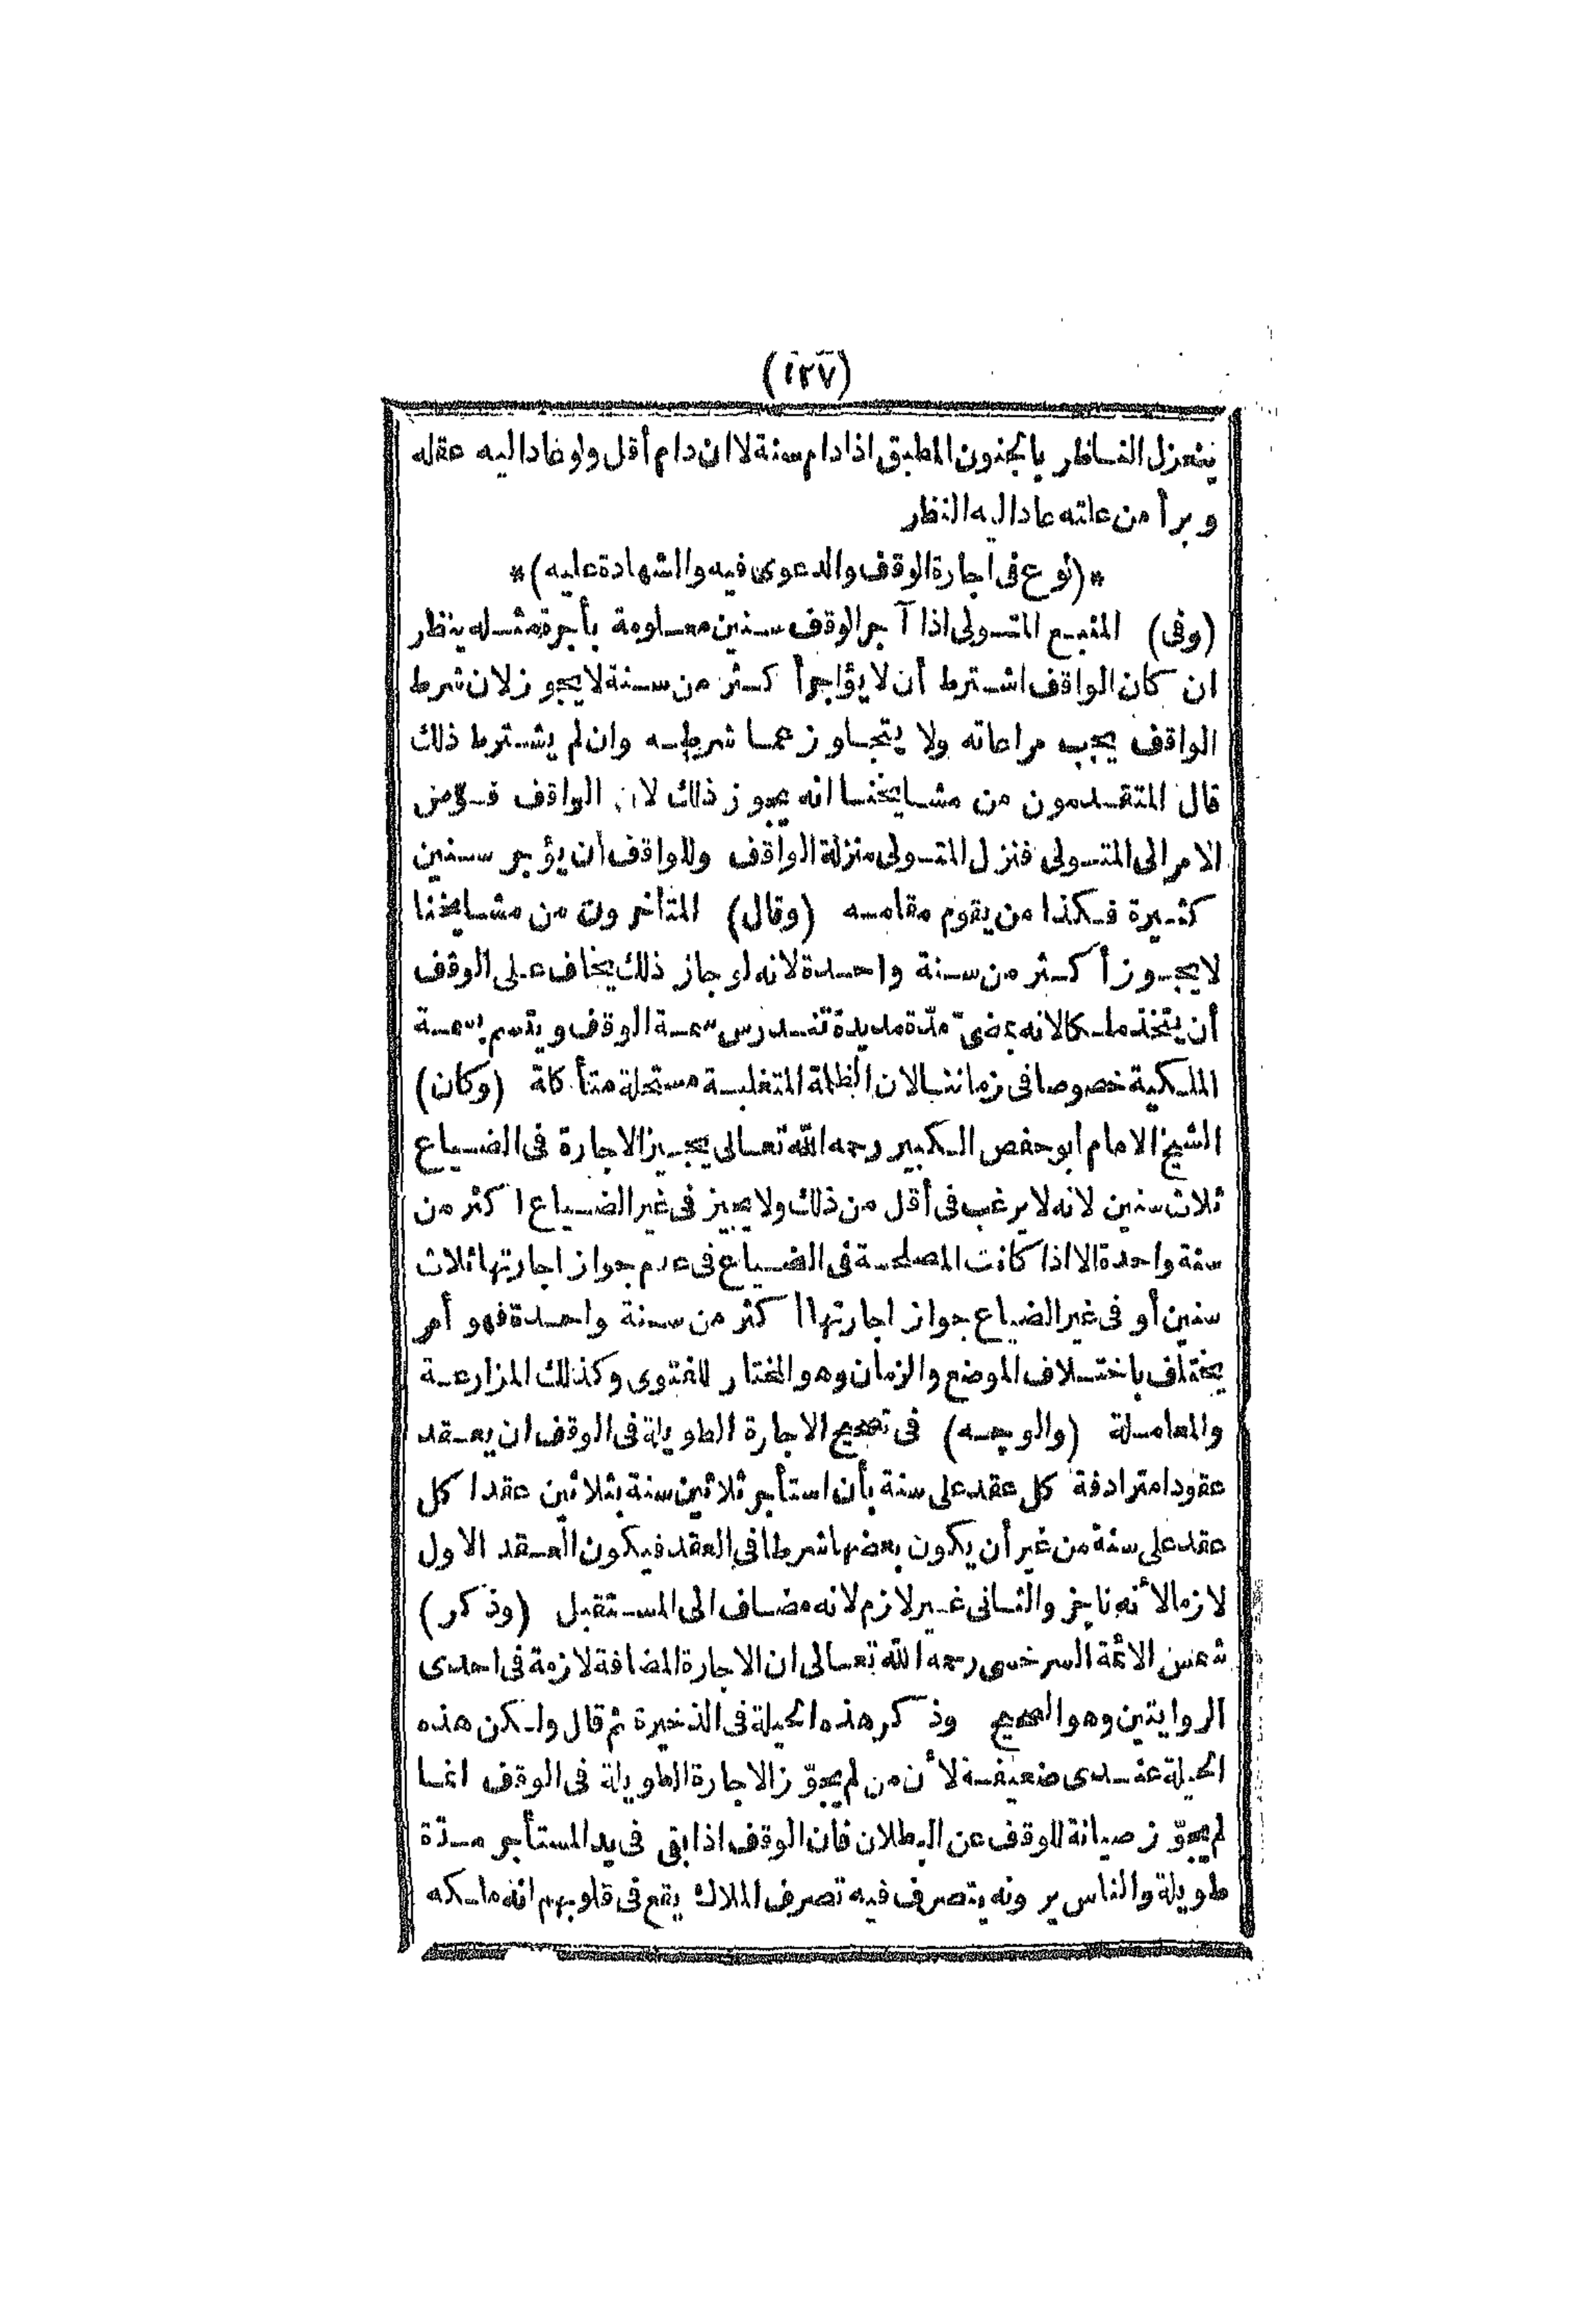 (١٢٧)
ينعزل الناظر بالجنون المطبق اذا دام سنة لا ان دام أقل ولو عاد اليه عقله
وبرأ من علته عاد اليه النظر
*(نوع فى اجارة الوقف والدعوى فيه والشهادة عليه)*
(وفى) المنبع المتولى اذا آجر الوقف سنين معلومة بأجرة مثله ينظر
ان كان الواقف اشترط أن لا يؤاجر أكثر من سنة لا يجوز لان شرط
الواقف يجب مراعاته ولا يتجاوز عما شرطه وان لم يشترط ذلك
قال المتقدمون من مشايخنا انه يجوز ذلك لان الواقف فوّض
الامر الى المتولى فنزل المتولى منزلة الواقف وللواقف أن يؤجر سنين
كثيرة فكذا من يقوم مقامه (وقال) المتأخرون من مشايخنا
لا يجوز أكثر من سنة واحدة لانه لو جاز ذلك يخاف على الوقف
أن يتخذ ملكا لانه بمضىّ مدّة مديدة تندرس سمة الوقف ويتسم بسمة
الملكية خصوصا فى زماننا لان الظلمة المتغلبة مستحلة متأكلة (وكان)
الشيخ الامام ابو حفص الكبير رحمه الله تعالى يجيز الاجارة فى الضياع
ثلاث سنين لانه لا يرغب فى أقل من ذلك ولا يجيز فى غير الضياع اكثر من
سنة واحدة الا اذا كانت المصلحة فى الضياع فى عدم جواز اجارتها ثلاث
سنين أو فى غير الضياع جواز اجارتها أكثر من سنة واحدة فهو أمر
يختلف باختلاف الموضع والزمان وهو المختار للفتوى وكذلك المزارعة
والمعاملة (والوجه) فى تصحيح الاجارة الطويلة فى الوقف ان يعقد
عقودا مترادفة كل عقد على سنة بأن استأجر ثلاثين سنة بثلاثين عقدا كل
عقد على سنة من غير أن يكون بعضها شرطا فى العقد فيكون العقد الاول
لازما لأنه ناجز والثانى غير لازم لانه مضاف الى المستقبل (وذكر)
شمس الائمة السرخسى رحمه الله تعالى ان الاجارة المضافة لازمة فى احدى
الروايتين وهو الصحيح وذكر هذه الحيلة فى الذخيرة ثم قال ولكن هذه
الحيلة عندى ضعيفة لأن من لم يجوّز الاجارة الطويلة فى الوقف انما
لم يجوّز صيانة للوقف عن البطلان فان الوقف اذا بقى فى يد المستأجر مدّة
طويلة والناس يرونه يتصرف فيه تصرف الملاك يقع فى قلوبهم انه ملكه